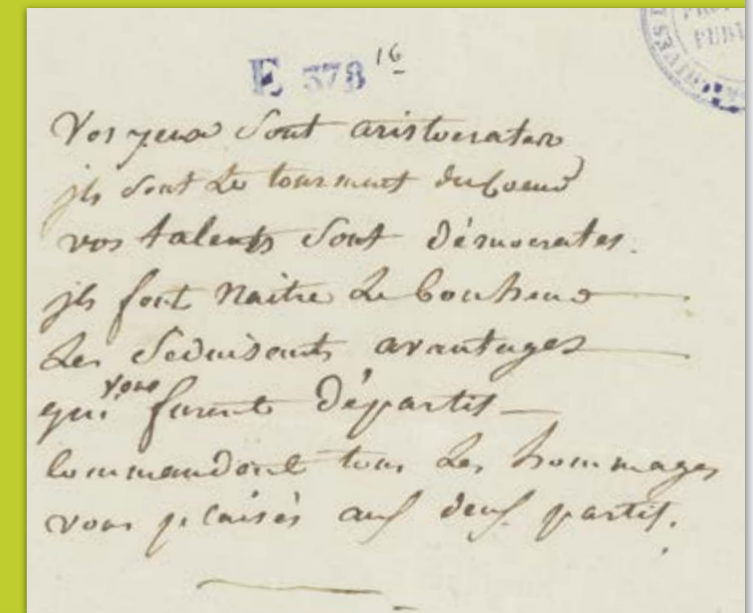 E 378 16
Vos yeux sont aristocrates
ils sont le tourment du coeur
vos talents sont démocrates.
ils font naitre le bonheur
Les séduisants avantages
qui vous furent départis
commandent tous les hommages
vous plaisés aux deux partis.